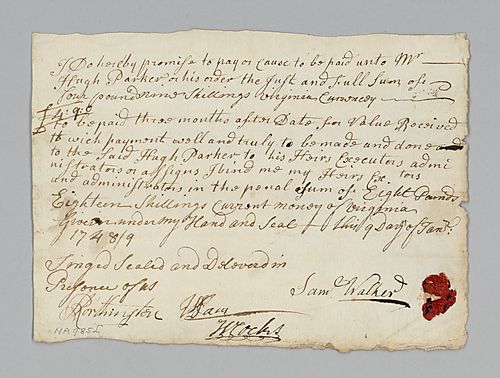 I Do hereby promise to pay or Cause to be paid unto Mr
Hugh Parker or his order the Just and Full Sum of
Four pounds nine Skillings Virginia Currency
£4:9:0
to be paid three months after Date for Value Received
to wich payment well and truly to be made and done
to the Said Hugh Parker to his Heirs Executors admi
nistrators or assigns I bind me my Heirs Ex tors
and administrators in the penal Sum of Eight Pounds
Eighteen Skillings Current money of Virginia
Given under my Hand and Seal this 9 Day of Janr.
1748/9
Singed Sealed and Deleverd in
Presence of us
Sam. Walker
Worthington
NA985L